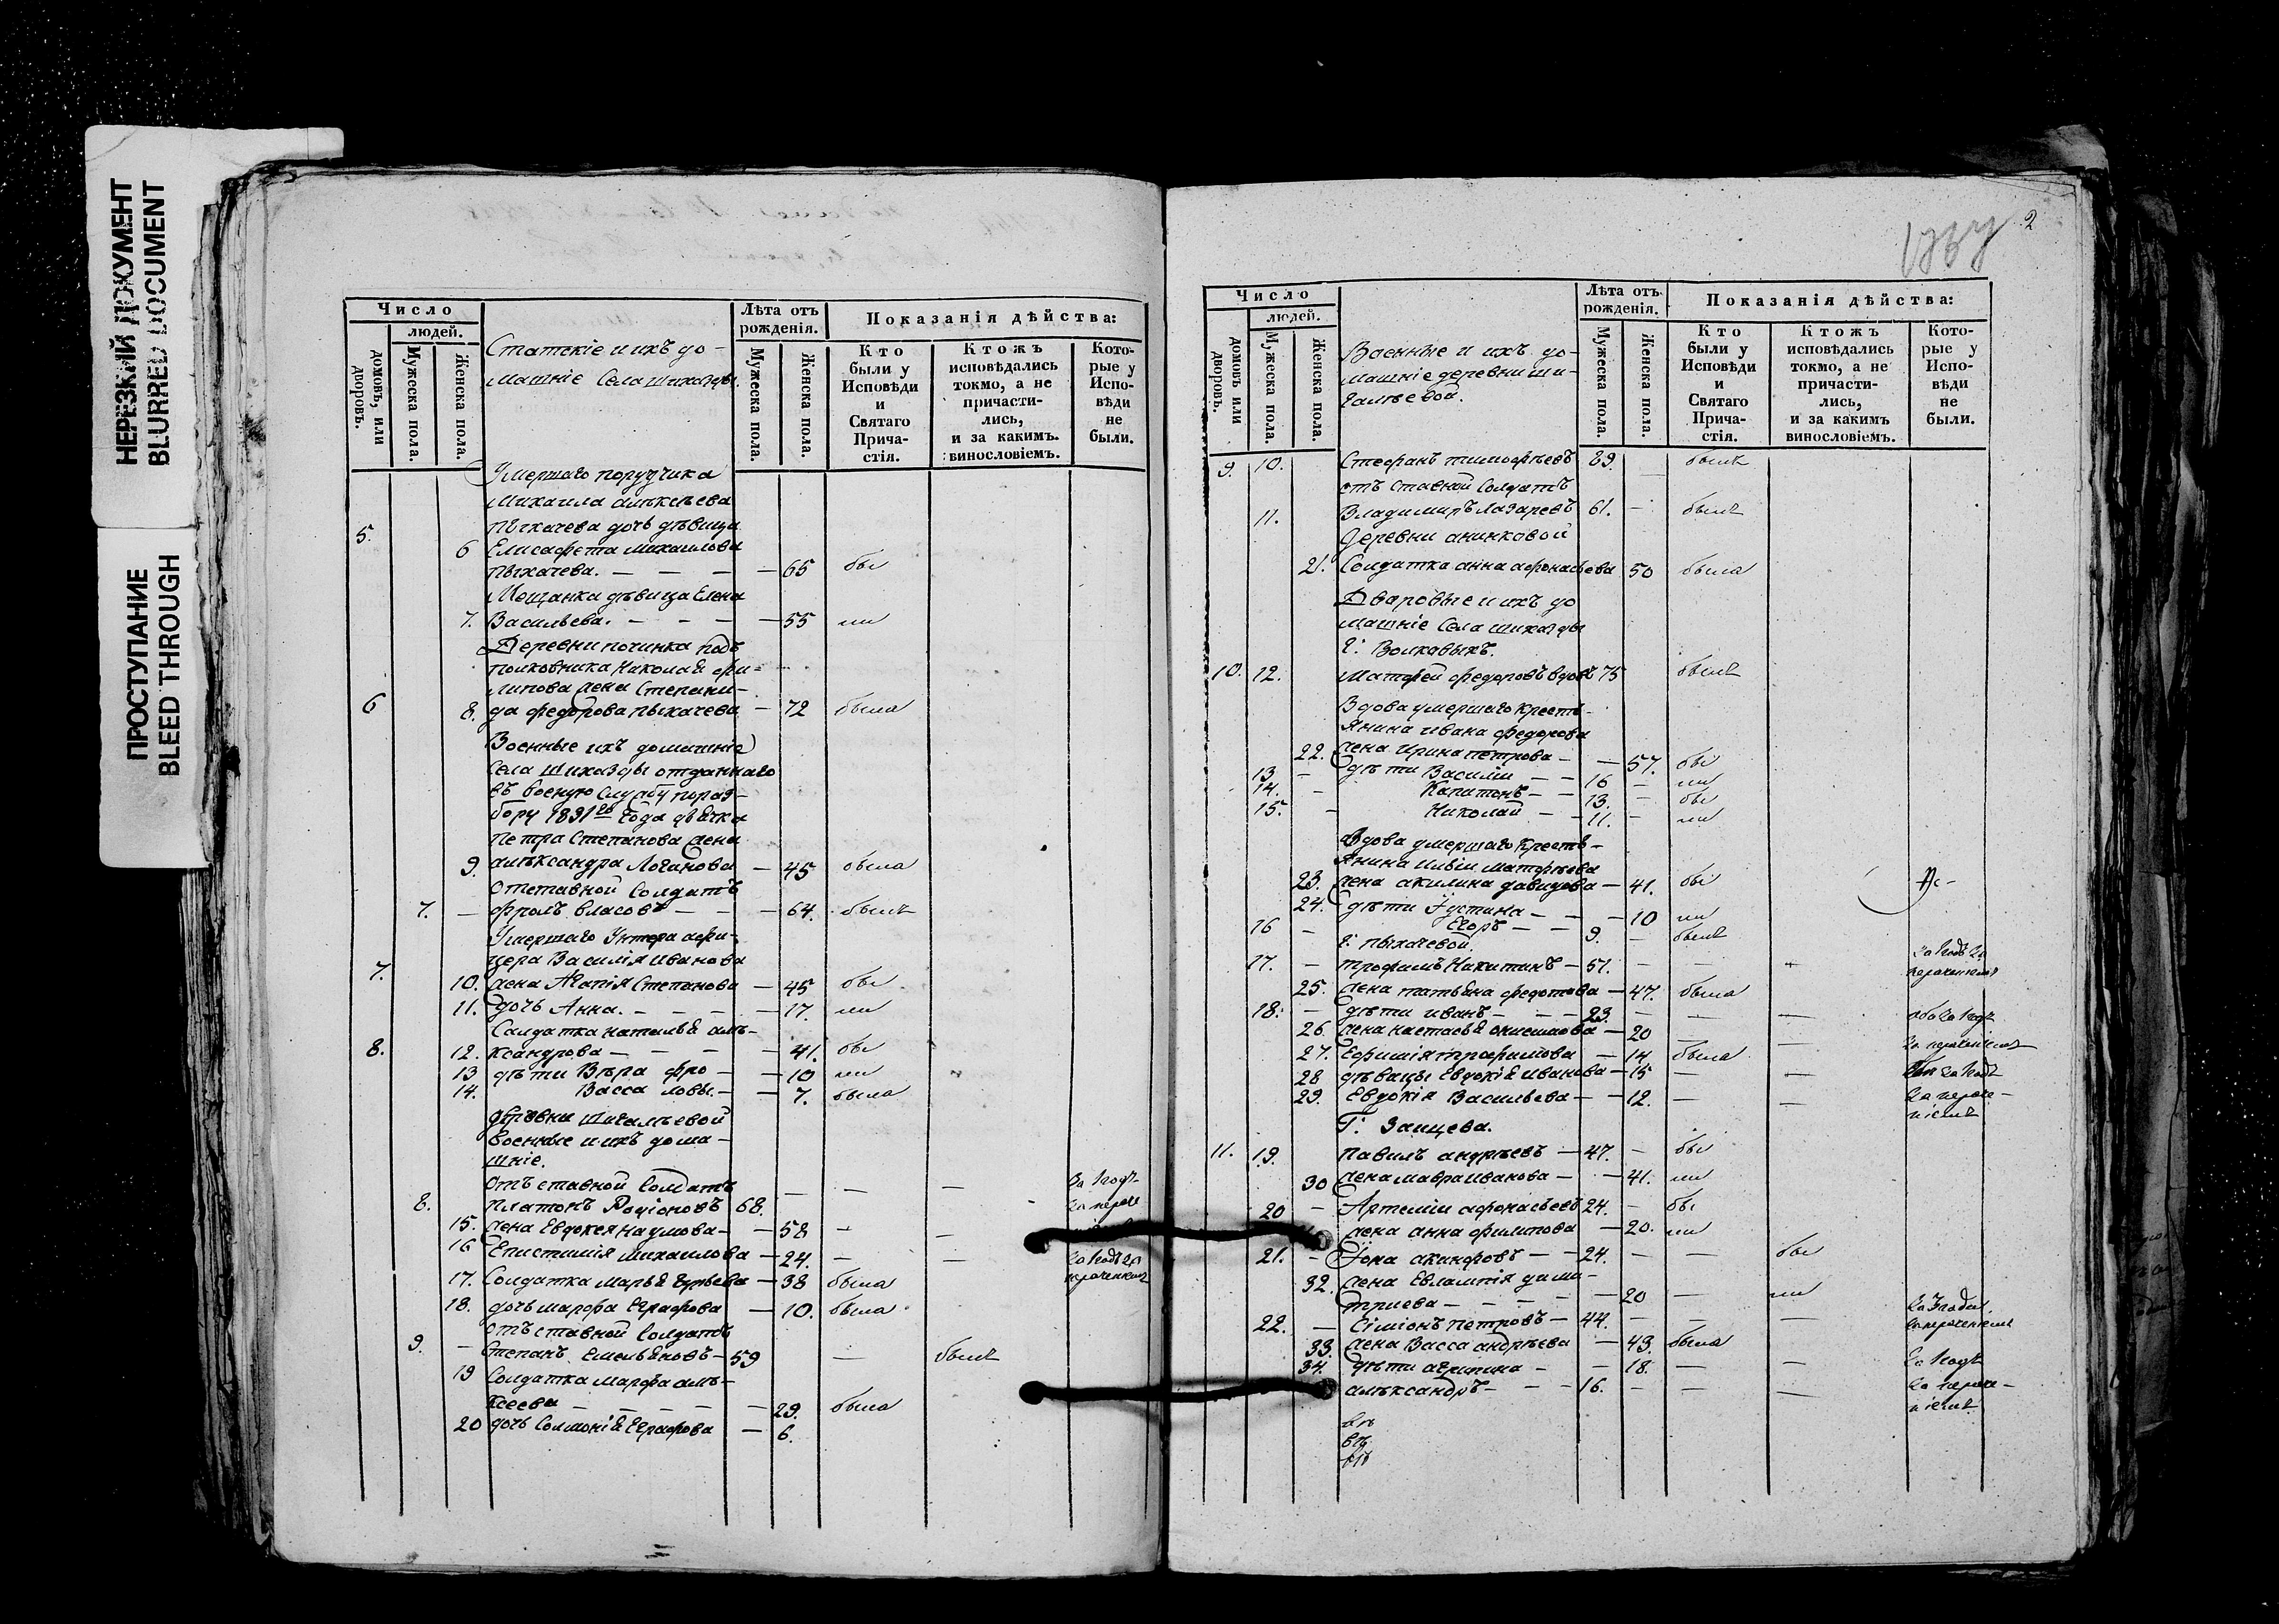 НЕРЕЗКИЙ ДОКУМЕНТ
BLURRED DOCUMENT
ПРОСТУПАНИЕ
BLEED THROUGH
Число
людей.
домовъ, или дворовъ.
Мужеска пола.
Женска пола.
Статские и ихъ до-
машніе Села
Лѣта отъ рожденія.
Мужеска пола.
Женска пола.
Показанія дѣйства:
Кто были у Исповѣди и Святаго Прича-стія.
Ктожъ исповѣдались токмо, а не причасти-лись, и за какимъ. винословіемъ.
Кото-рые у Испо-вѣди не были.
Умершаго поручика
Михаила алѣксѣева
Пыхачева дочь дѣвица
5. 6 Елисафета михаилова
Пыхачева. — — — — 65 бы
Мещанка дѣвица Елена
7. Васильева. — — — — 55 ли
Деревни починка подъ
полковника Николая фи-
липова жена Степани-
6 8. да федорова пыхачева — 72 была
Военные ихъ домашніе
Села отданнаго
въ военую Службу пораз-
бору 1831го года дьячка
Петра Степанова жена
9. алѣксандра Логанова — 45 была
Отставной Солдатъ
7. — фролъ власовъ — — 64. былъ
Умершаго Унтера афи-
цера Василія Иванова
7. 10. жена Агапія Степанова — 45 бы
11. дочь Анна. — — — — 17. ли
Салдатка наталья алѣ-
8. 12. ксандрова — — — — 41. бы
13 дѣти Вѣра фро- — 10 ли
14. Васса ловы. — — 7. была
деревни Шигалѣевой
Военные и ихъ дома-
шніе.
Отъставной Солдатъ — — — За 1годъ
8. платонъ Родіоновъ 68.
15. жена Евдокея наумова — — 58 — —
16 Епистимія михаилова — 24. — —
17. Солдатка марья — 38 была
18. дочь марфа Евграфова — 10. была
отъставной Солдатъ
9. — Степанъ Емельяновъ — 59 — былъ
19 Солдатка марфа алѣ-
ксеева — — — — — 29. была
20 дочь Соломонія Евграфова — 6.
2
Число
людей.
домовъ или дворовъ.
Мужеска пола.
Женска пола.
Военные и ихъ до-
машніе деревни Ши-
галѣевой.
Лѣта отъ рожденія.
Мужеска пола.
Женска пола.
Показанія дѣйства:
Кто были у Исповѣди и Святаго Прича-стія.
Ктожъ исповѣдались токмо, а не причасти-лись, и за какимъ винословіемъ.
Кото-рые у Испо-вѣди не были.
9. 10. Стефанъ тимофѣевъ 29. — былъ
отъ Ставной Солдатъ
11. Владимиръ Лазаревъ 61. — былъ
Деревни аниковой
21. Солдатка анна афонасьева 50 была
Дваровые и ихъ до
машніе Села
Г: Волкавыхъ.
10. 12. матфей федоровъ вдовъ 75 былъ
Вдова умершаго кресть-
янина ивана федорова
22. жена Ирина петрова — — 57. бы
13 — дѣти Василіи — — 16 — ли
14. — Капитонъ — — 13. — бы
15. — Николай — — 11. — ли
Вдова умершаго кресть-
янина матфѣева
23. жена акилина давидова — 41. бы
24. дѣти Іустина — — — 10 ли
16 — Егоръ — — 9. — былъ
Г: пыхачевой.
17. — трофимъ Никитинъ — 57. — — —
25. жена татьяна федотова — 47. была
18. — дѣти иванъ — — — 23. — — — оба за 1годъ
26. жена настасья — 20 — —
27. Ефимія трофимова — 14. была
28 дѣвицы Евдокія иванова — 15 — — за 1годъ
29. Евдокія Васильева — — 12. — —
Г: Заицева.
11. 19. павилъ андрѣевъ — 47. — бы
30 жена мавра иванова — — 41. ли
20 — Артеміи афонасьевъ 24. — бы
жена анна филипова — 20. ли
21. — Іона акинфовъ — — 24. — — бы
32. жена Евлампія дими-
триева — — — — — 20 — ли
22. — Сіміонъ петровъ — 44. — — —
33. жена Васса андрѣева — 43. была
34. дѣти агрипина — — 18. — — За 1годъ
алѣксандръ — — — 16. — — —